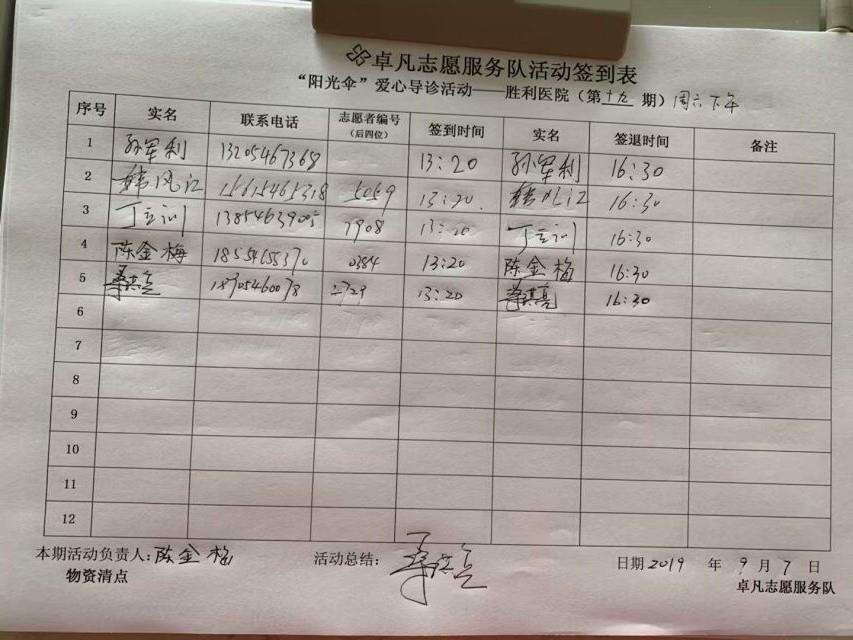 卓凡志愿服务队活动签到表
“阳光伞”爱心导诊活动——胜利医院（第十九期）周六下午
序号 实名 联系电话 志愿者编号（后四位） 签到时间 实名 签退时间 备注
1 孙军利 13205467368 13:20 孙军利 16:30
2 韩风江 15615465318 5059 13:20. 韩风江 16:30
3 丁立训 13854639005 7908 13:20 丁立训 16:30
4 陈金梅 18554655370 0384 13:20 陈金梅 16:30
5 18705460078 2729 13:20 16:30
6
7
8
9
10
11
12
本期活动负责人:陈金梅 活动总结: 日期2019年9月7日
物资清点 卓凡志愿服务队